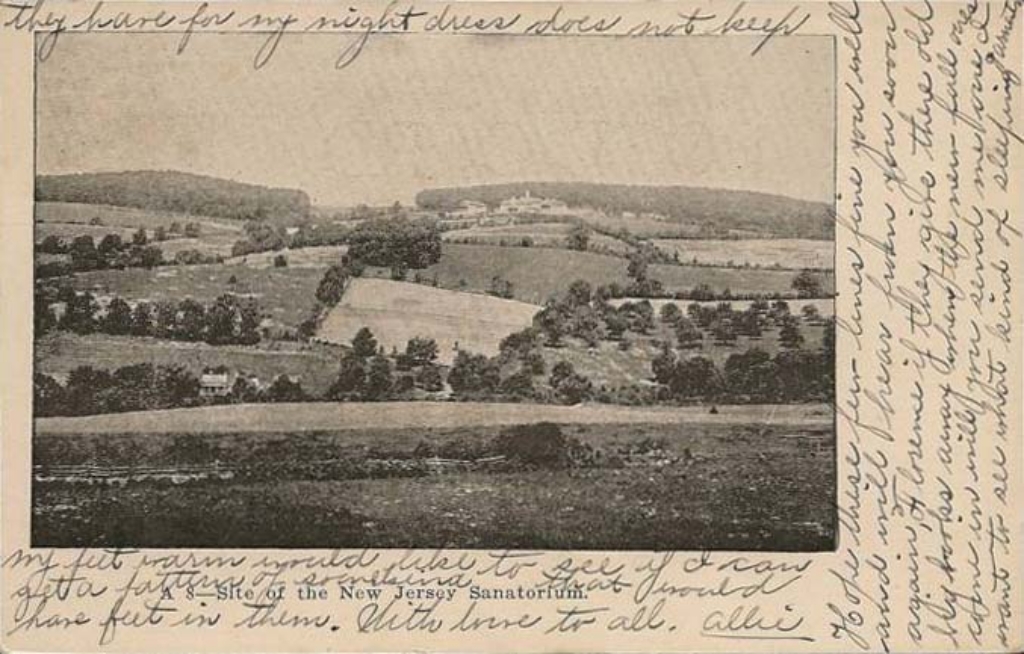 Hope these few lines fine you well
and will hear from you soon
again, & loreme if they give there old
by books away when the new fall ones
come in will you send me one I
want to see what kind of sleeping garments
they have for my night dress does not keep
my feet warm would like to see if I can
get a pattern of somekind that would
have feet in them. With love to all. Allie
A 8—Site of the New Jersey Sanatorium.